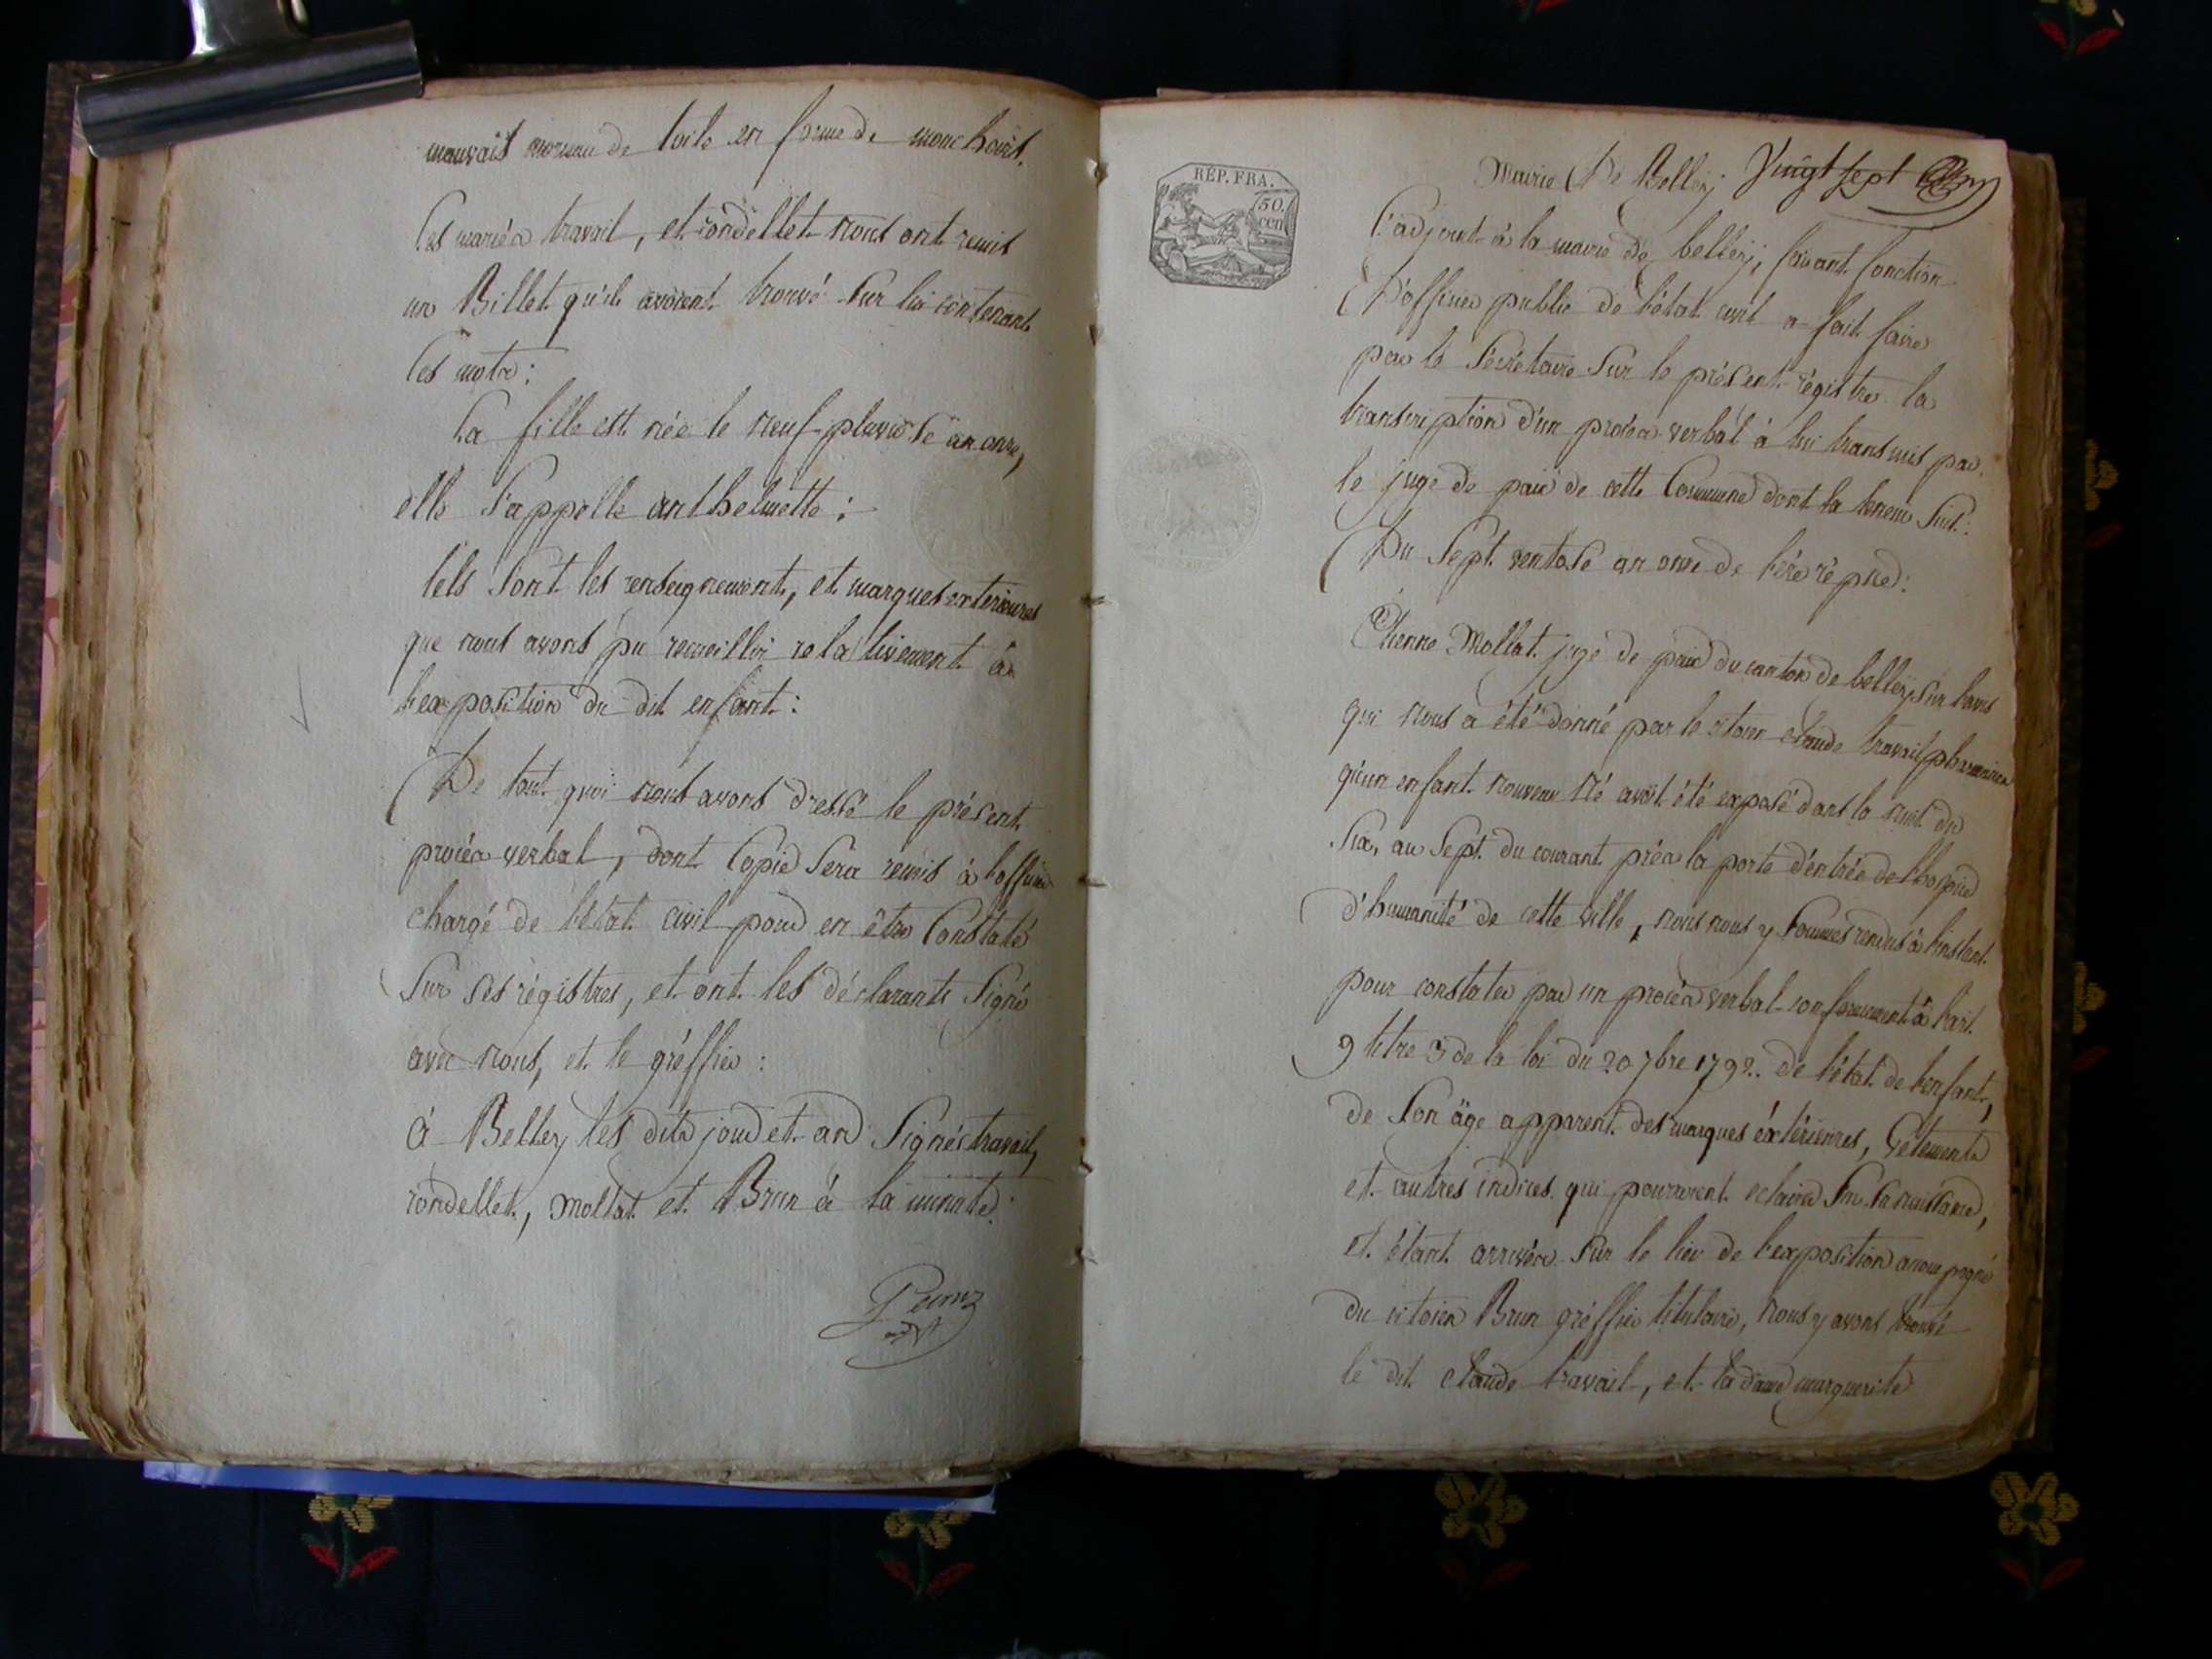 mauvais morceau de toile en forme de mouchoirs.
Les mariés travail, et rondellet nous ont remis
un Billet qu'ils avoient trouvé sur lui contenant
Ces mots:
La fille est née le neuf pluviose an onze,
elle s'appelle anthelmette:
tels sont les renseignements, et marques exterieures
que nous avons pu recueillir relativement à
l'exposition du dit enfant:
De tout quoi nous avons dressé le présent
procès verbal, dont Copie sera remis à l'officier
chargé de l'état civil pour en être Constaté
Sur ses régistres, et ont les déclarants Signé
avec nous, et le gréffier:
à Belley les dits jour et an Signés travail,
rondellet, Mollat et Brun à la minute:
RÉP. FRA.
50.
cen
Mairie De Belley Vingt sept
L'adjoint à la mairie de belley, faisant fonction
D'officier public de l'état civil a fait faire
par le Sécrétaire Sur le présent régistre la
transcription d'un procès verbal à lui transmis par
le juge de paix de cette Commune dont la teneur Suit:
Du Sept ventose an onze de l'ère répne:
Etienne Mollat juge de paix du canton de belley, sur l'avis
qui nous a été donné par le citoien claude travail pharmacien
qu'un enfant nouveau né avoit été exposé dans la nuit du
Six, au Sept du courant près la porte d'entrée de l'hospice
d'humanité de cette ville, nous nous y sommes rendus à l'instant
pour constater par un procès verbal conformement à l'art.
9 titre 3 de la loi du 20 7bre 1792. de l'état de l'enfant,
de Son äge apparent des marques éxtérieures, Vetements
et autres indices qui pourroient eclairer Sur Sa naissance,
et étant arrivés Sur le lieu de l'exposition accompagné
du citoien Brun gréffier titulaire, nous y avons trouvé
le dit claude travail, et la dame marguerite